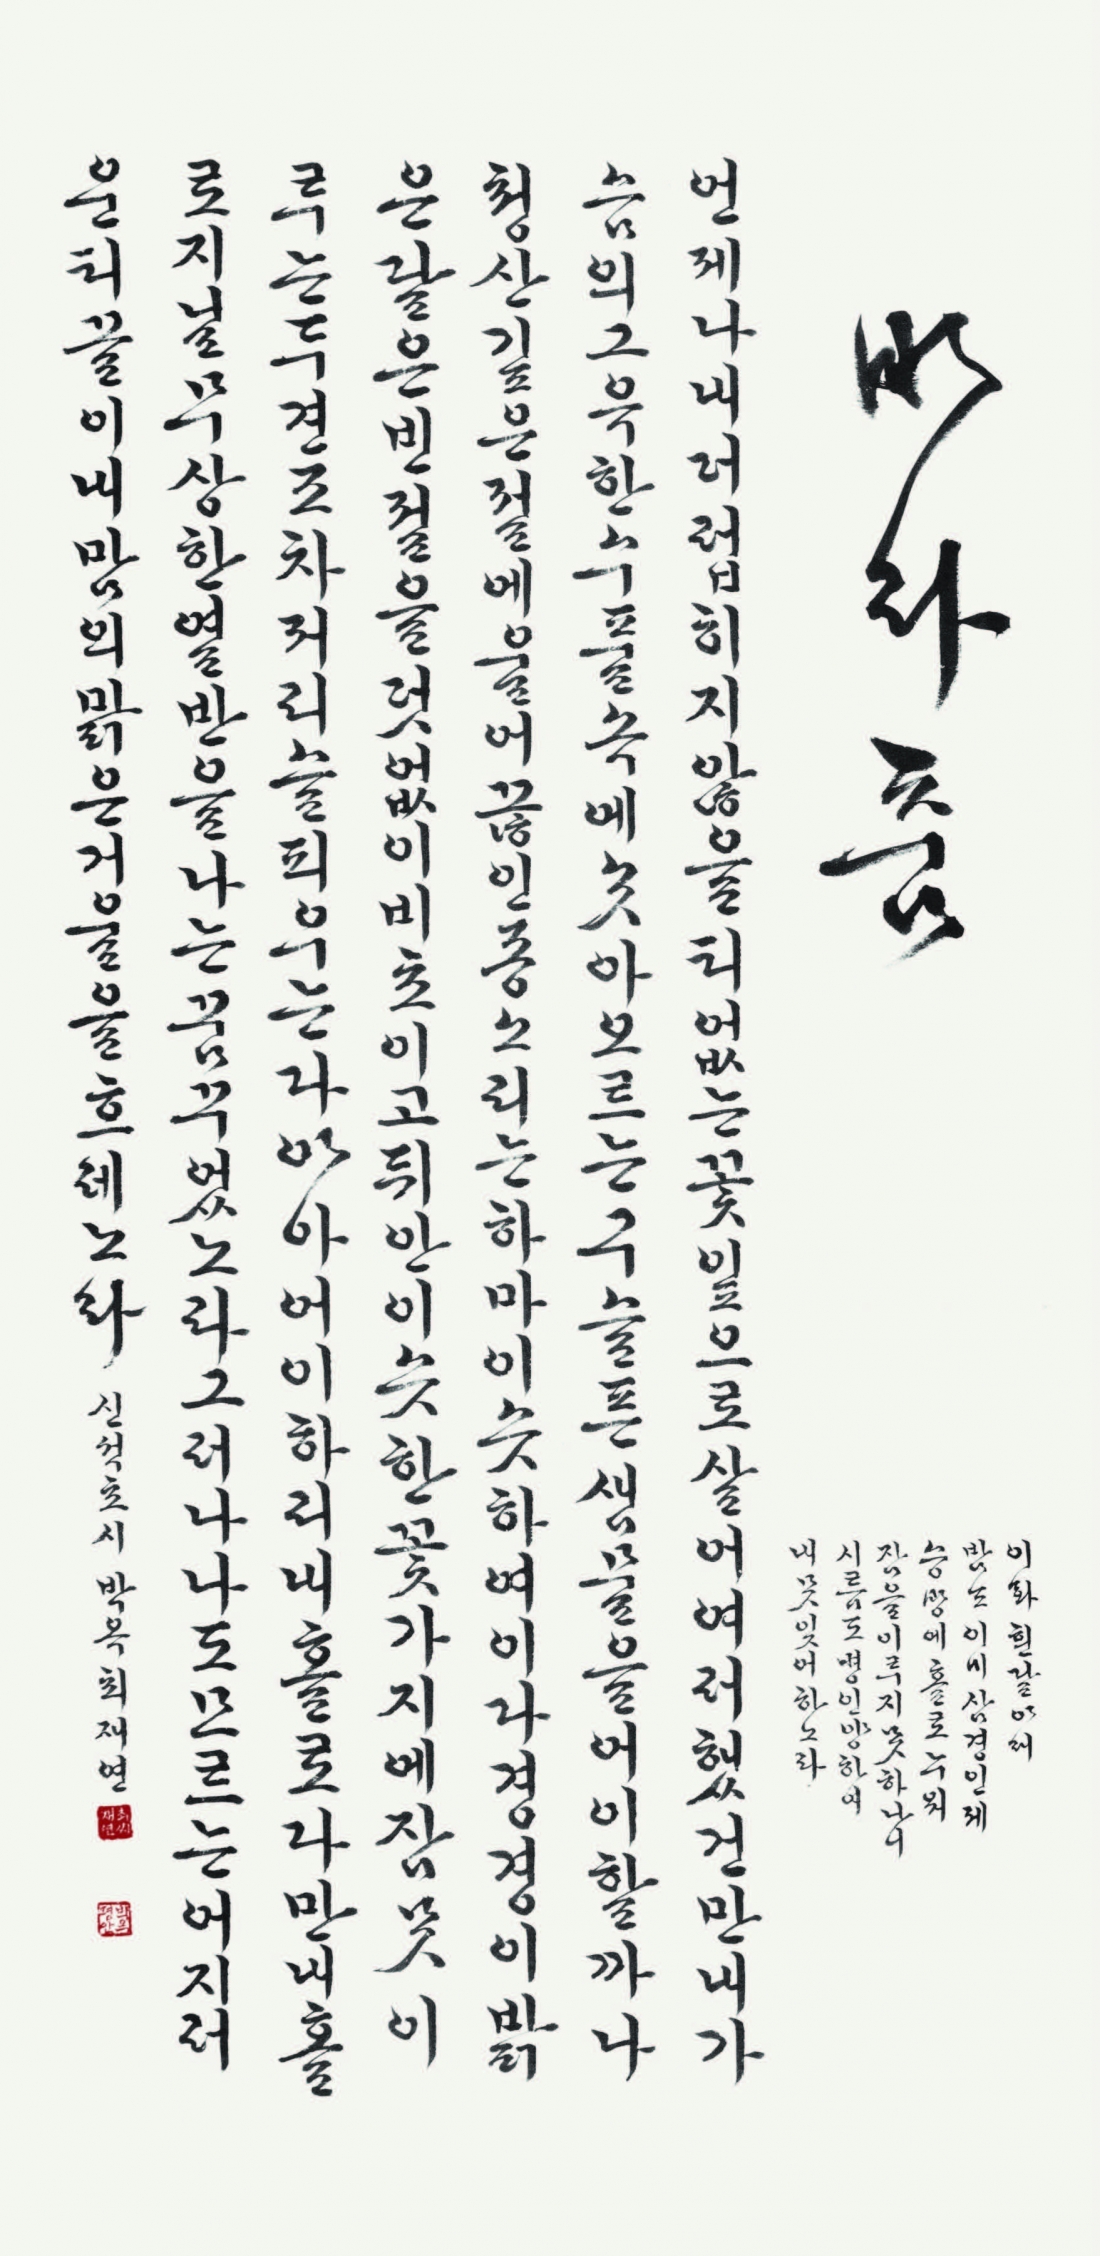 바라춤
이화 흰달아래
밤도 이미 삼경인제
승방에 홀로 누워
잠을이루지못하나니
시름도병인양하여
내못잊어하노라
언제나내더럽히지않을티없는꽃잎으로살어여러했건만내가
슴의그윽한수풀속에솟아오르는구슬픈샘물을어이할까나
청산깊은절에울어끊인종소리는하마이슷하여이다경경이밝
은달은빈절을덧없이비초이고뒤안이슷한꽃가지에잠못이
루는두견조차저리슬피우는다아아어이하리내홀로다만내홀
로지닐무상한열반을나는꿈꾸었노라그러나나도모르는어지러
운티끌이내맘의맑은거울을흐레노라 신석초시 박옥최재연